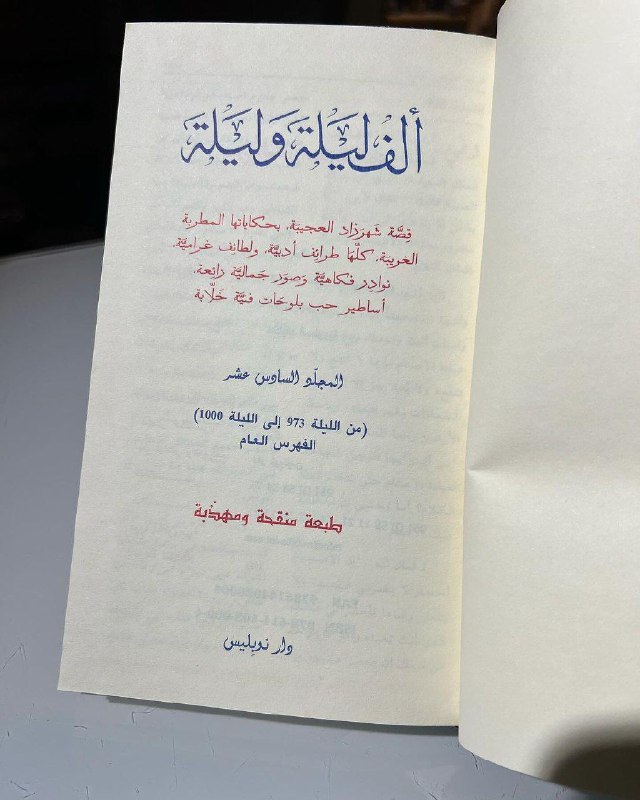 ألف ليلة وليلة
قِصَّة شَهرَزاد العجيبَة، بحكاياتها المطربة
الغريبَة، كلّهَا طرائف أدبيَّة، ولطائِف غرَاميَّة،
نوادِر فكاهيَّة وَصوَر جَماليَّة رَائِعة،
أساطير حب بلوحَات فنيَّة خَلَّابة
المجلّد السادس عشر
(من الليلة 973 إلى الليلة 1000)
الفهرس العام
طبعة منقحة ومهذّبة
دار نوبليس